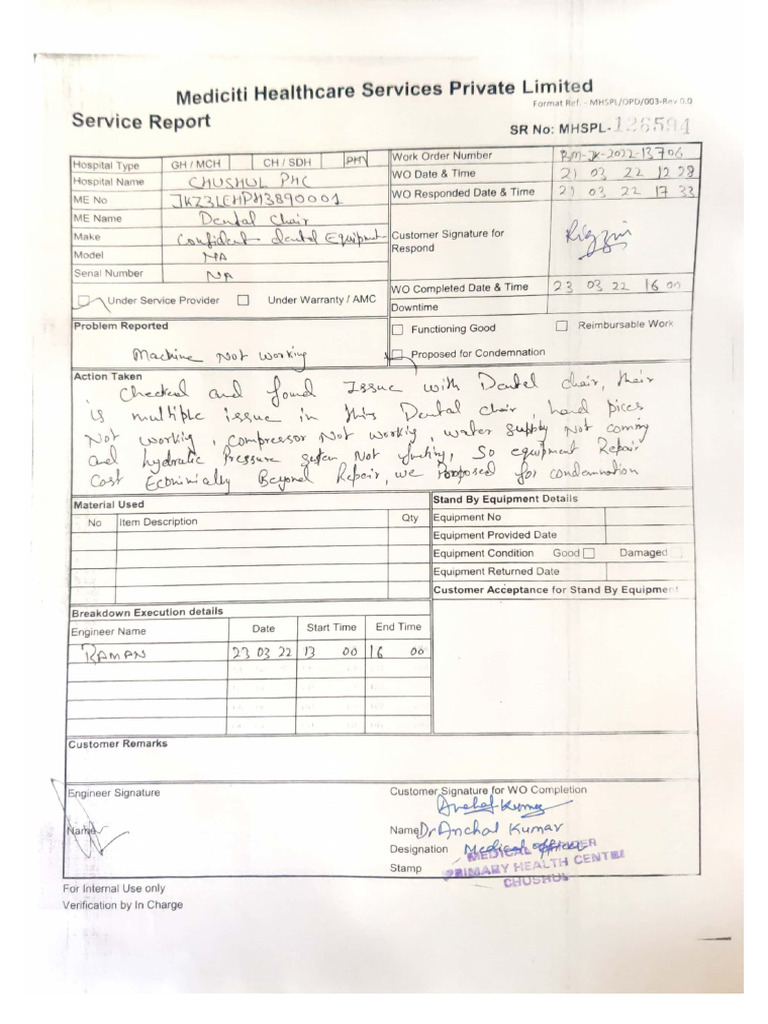 Mediciti Healthcare Services Private Limited
Format Ref. - MHSPL/OPD/003-Rev 0.0
Service Report
SR No: MHSPL-126594
Hospital Type GH / MCH CH / SDH PH
Hospital Name CHUSHUL PHC
ME No JKZ3LEHPH3890001
ME Name Dental Chair
Make Confident dental Equipment
Model NA
Serial Number NA
Work Order Number BM-JK-2022-13706
WO Date & Time 21 03 22 12 28
WO Responded Date & Time 21 03 22 17 33
Customer Signature for
Respond
Rigzin
WO Completed Date & Time 23 03 22 16 00
Downtime
Under Service Provider Under Warranty / AMC
Problem Reported
Machine Not Working
Functioning Good Reimbursable Work
Proposed for Condemnation
Action Taken
Checked and found Issue with Dental chair, their
is multiple issue in this Dental chair, hand pices
Not working, compressor Not working, water supply Not coming
and hydralic Pressure system Not , So equipment Repair
Cost Beyond Repair, we Proposed for condemnation
Material Used
No Item Description Qty
Stand By Equipment Details
Equipment No
Equipment Provided Date
Equipment Condition Good Damaged
Equipment Returned Date
Customer Acceptance for Stand By Equipment
Breakdown Execution details
Engineer Name Date Start Time End Time
RAMAN 23 03 22 13 00 16 00
Customer Remarks
Engineer Signature
Name
Customer Signature for WO Completion
Anchal Kumar
Name Dr Anchal Kumar
Designation Medical officer
Stamp
MEDICAL OFFICER
PRIMARY HEALTH CENTRE
CHUSHUL
For Internal Use only
Verification by In Charge